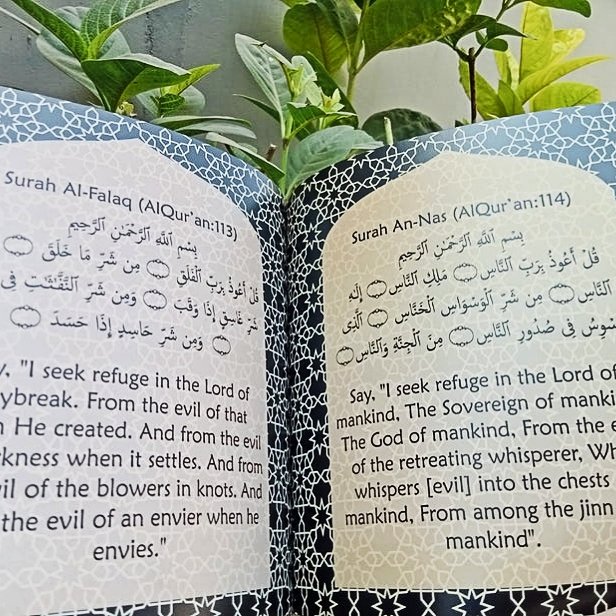 Surah Al-Falaq (AlQur'an:113)
بِسْمِ ٱللَّهِ ٱلرَّحْمَٰنِ ٱلرَّحِيمِ
قُلْ أَعُوذُ بِرَبِّ ٱلْفَلَقِ ۝ مِن شَرِّ مَا خَلَقَ ۝
شَرِّ غَاسِقٍ إِذَا وَقَبَ ۝ وَمِن شَرِّ ٱلنَّفَّٰثَٰتِ فِى
۝ وَمِن شَرِّ حَاسِدٍ إِذَا حَسَدَ ۝
"I seek refuge in the Lord of
From the evil of that
He created. And from the evil
when it settles. And from
of the blowers in knots. And
the evil of an envier when he
envies."
Surah An-Nas (AlQur'an:114)
بِسْمِ ٱللَّهِ ٱلرَّحْمَٰنِ ٱلرَّحِيمِ
قُلْ أَعُوذُ بِرَبِّ ٱلنَّاسِ ۝ مَلِكِ ٱلنَّاسِ ۝ إِلَٰهِ
ٱلنَّاسِ ۝ مِن شَرِّ ٱلْوَسْوَاسِ ٱلْخَنَّاسِ ۝ ٱلَّذِى
فِى صُدُورِ ٱلنَّاسِ ۝ مِنَ ٱلْجِنَّةِ وَٱلنَّاسِ ۝
Say, "I seek refuge in the Lord of
mankind, The Sovereign of
The God of mankind, From the
of the retreating whisperer,
whispers [evil] into the chests
mankind, From among the jinn
mankind".